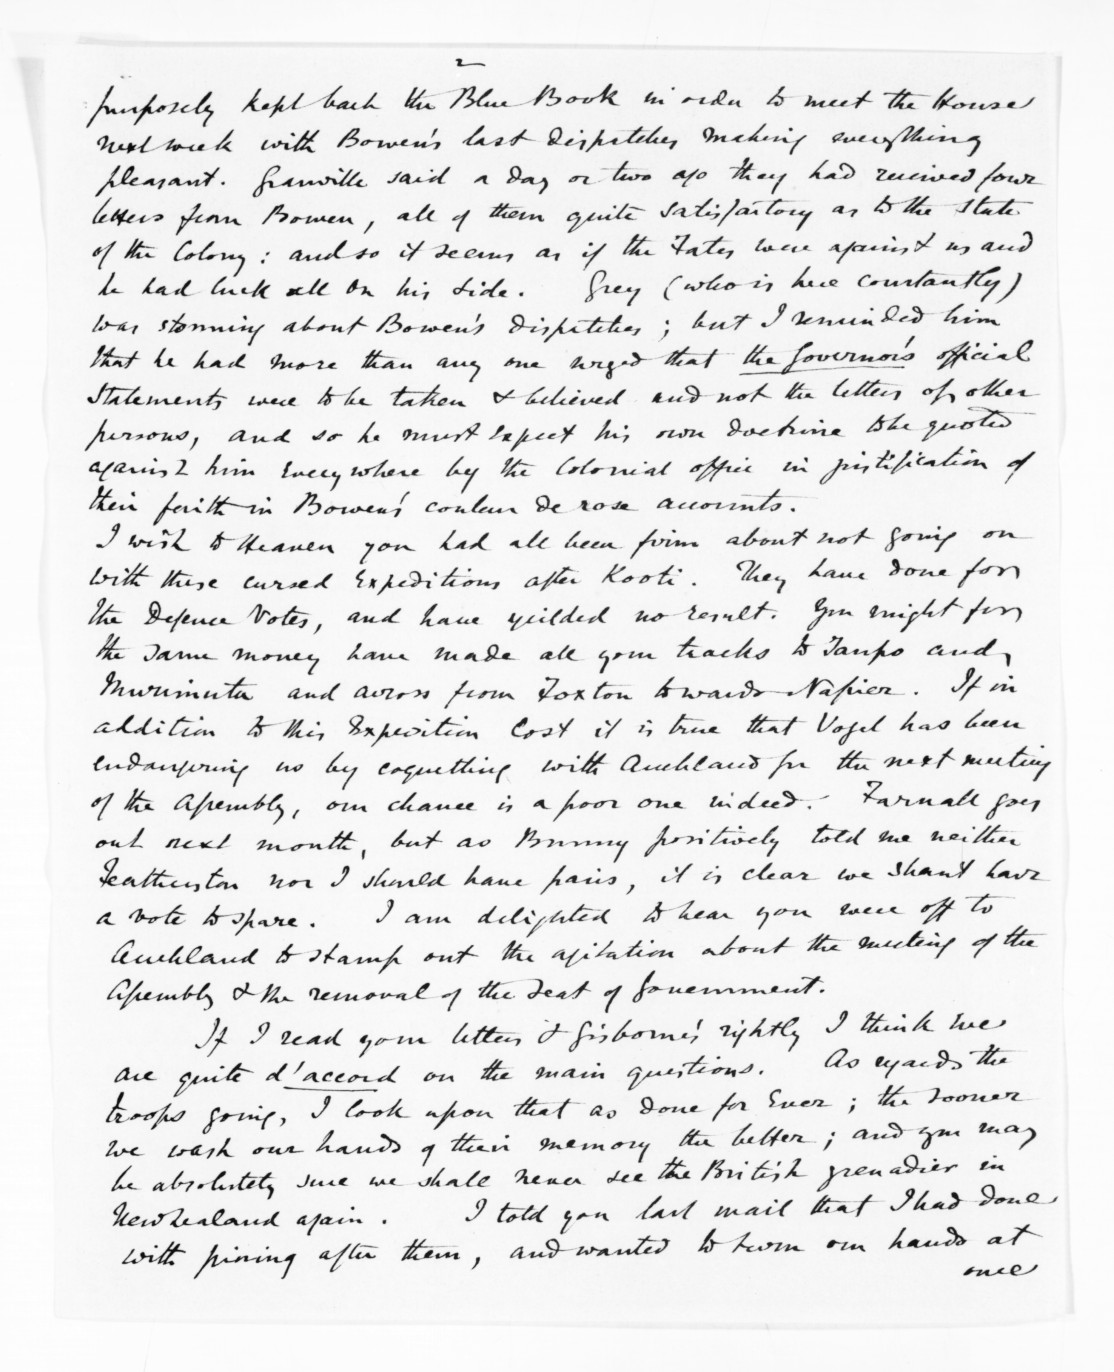 2
purposely kept back the Blue Book in order to meet the House
next week with Bowen's last dispatches making everything
pleasant. Granville said a day or two ago they had received four
letters from Bowen, all of them quite satisfactory as to the state
of the Colony: and so it seems as if the Fates were against us and
he had luck all on his side. Grey (who is here constantly)
was storming about Bowen's dispatches; but I reminded him
that he had more than any one urged that the Governor's official
statements were to be taken & believed and not the letters of other
persons, and so he must expect his own doctrine to be quoted
against him everywhere by the Colonial office in justification of
their faith in Bowen's couleur de rose accounts.
I wish to Heaven you had all been firm about not going on
with these cursed Expeditions after Kooti. They have done for
the Defence Votes, and have yielded no result. You might for
the same money have made all your tracks to Taupo and
Murimutu and across from Foxton towards Napier. If in
addition to this Expedition Cost it is true that Vogel has been
endangering us by coquetting with Auckland for the next meeting
of the Assembly, our chance is a poor one indeed. Farnall goes
out next month, but as Bunny positively told me neither
Featherston nor I should have pairs, it is clear we shan't have
a vote to spare. I am delighted to hear you were off to
Auckland to stamp out the agitation about the meeting of the
Assembly & the removal of the Seat of Government.
If I read your letters & Gisborne's rightly I think we
are quite d'accord on the main questions. As regards the
troops going, I look upon that as done for Ever; the sooner
we wash our hands of their memory the better; and you may
be absolutely sure we shall never see the British grenadier in
New Zealand again. I told you last mail that I had done
with pining after them, and wanted to turn our hands at
once